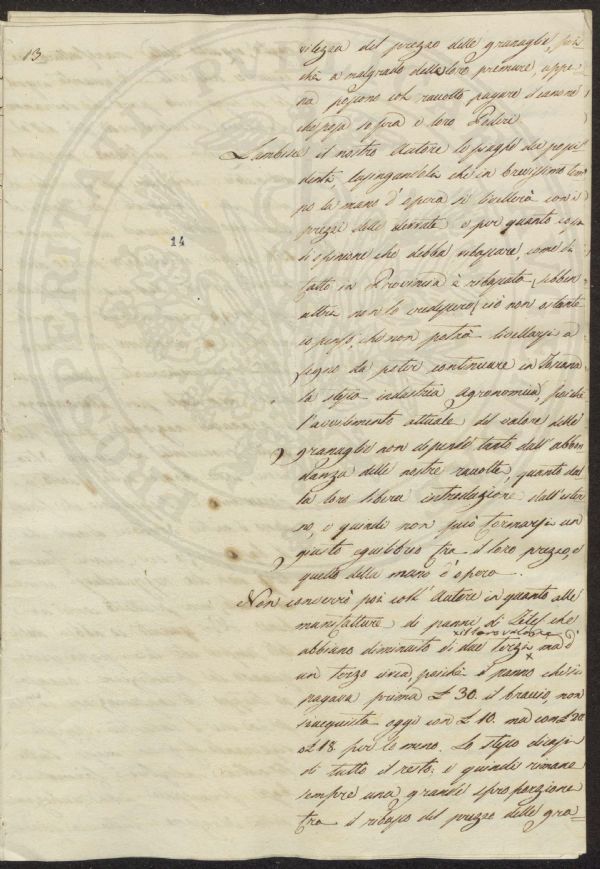 13
vilezza del prezzo delle granaglie, poi
chè a malgrado delle loro premure, appe
na possono col raccolto pagare il canone
che posa sopra i loro Poderi
il nostro Autore le paghe dei possi
denti, lusingandoli che in brevissimo tem
po la mano d'opera si livellerà con i
prezzi delle derrate e per quanto, io sia
di opinione che debba ribassare, come di
fatto in Provincia è ribassata (sebben
altri non lo credessero) ciò non ostante
io penso, che non potrà livellarsi a
segno da poter continuare in Toscana
14
la stessa industria Agronomica, poiché
l'avvilimento attuale del valore delle
granaglie non dipende tanto dall'abbon
danza delle nostre raccolte, quanto dal
la loro libera introduzione dall'ester
no, e quindi non può formarsi un
giusto equilibrio fra il loro prezzo, e
quello della mano d'opera.
Non converrò poi coll'Autore in quanto alle
manifatture di panni, di Tele che
abbiano diminuito di due terzi ma d'
x il loro valore
un terzo circa, poichè il panno che si
pagava prima £ 30. il braccio, non
si acquista oggi con £ 10. ma con £ 20
o £ 18 per lo meno. Lo stesso dicasi
di tutto il resto; e quindi rimane
sempre una grande sproporzione
tra il ribasso del prezzo delle gra=